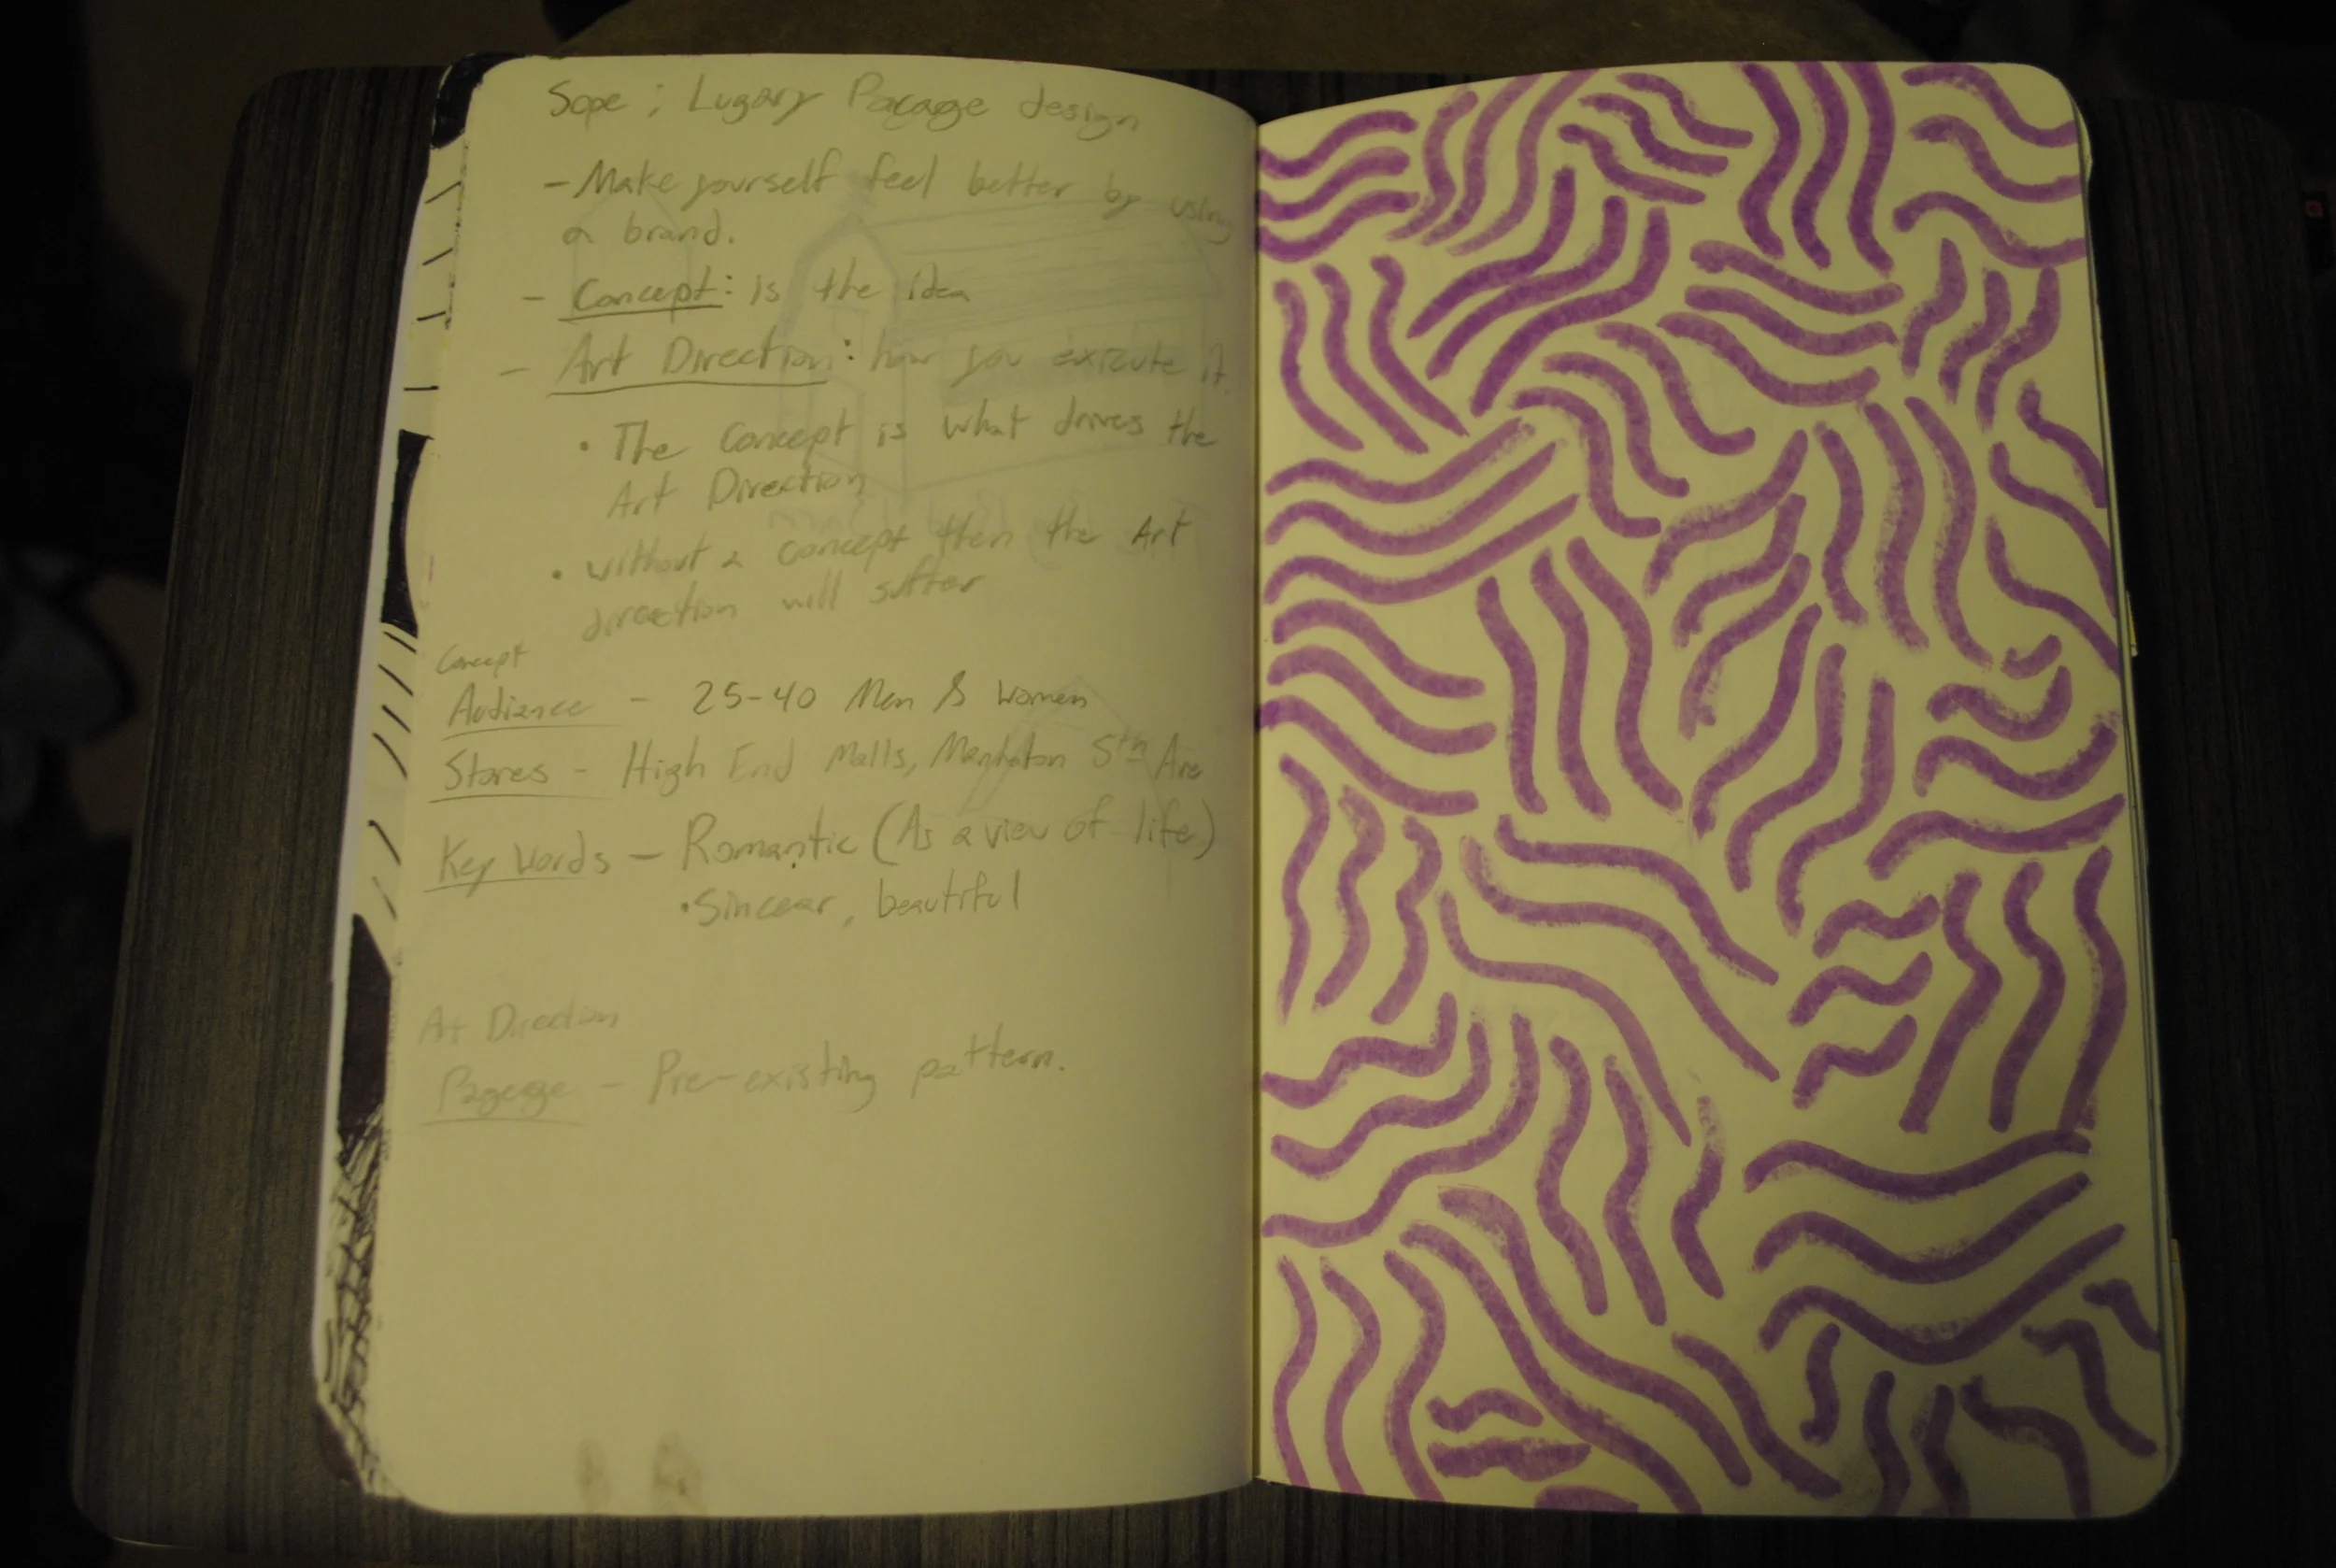 Sope ; Lugary Pacage design
- Make yourself feel better by using
a brand.
- Concept: is the idea
- Art Direction: how you execute it.
• The Concept is what drives the
Art Direction
• without a concept then the Art
direction will suffer
Concept
Audiance - 25-40 Men & Women
Stores - High End Malls, Manhaton 5th Ave
Key Words - Romantic (As a view of life)
• Sincear, beautiful
Art Direction
- Pre-existing pattern.